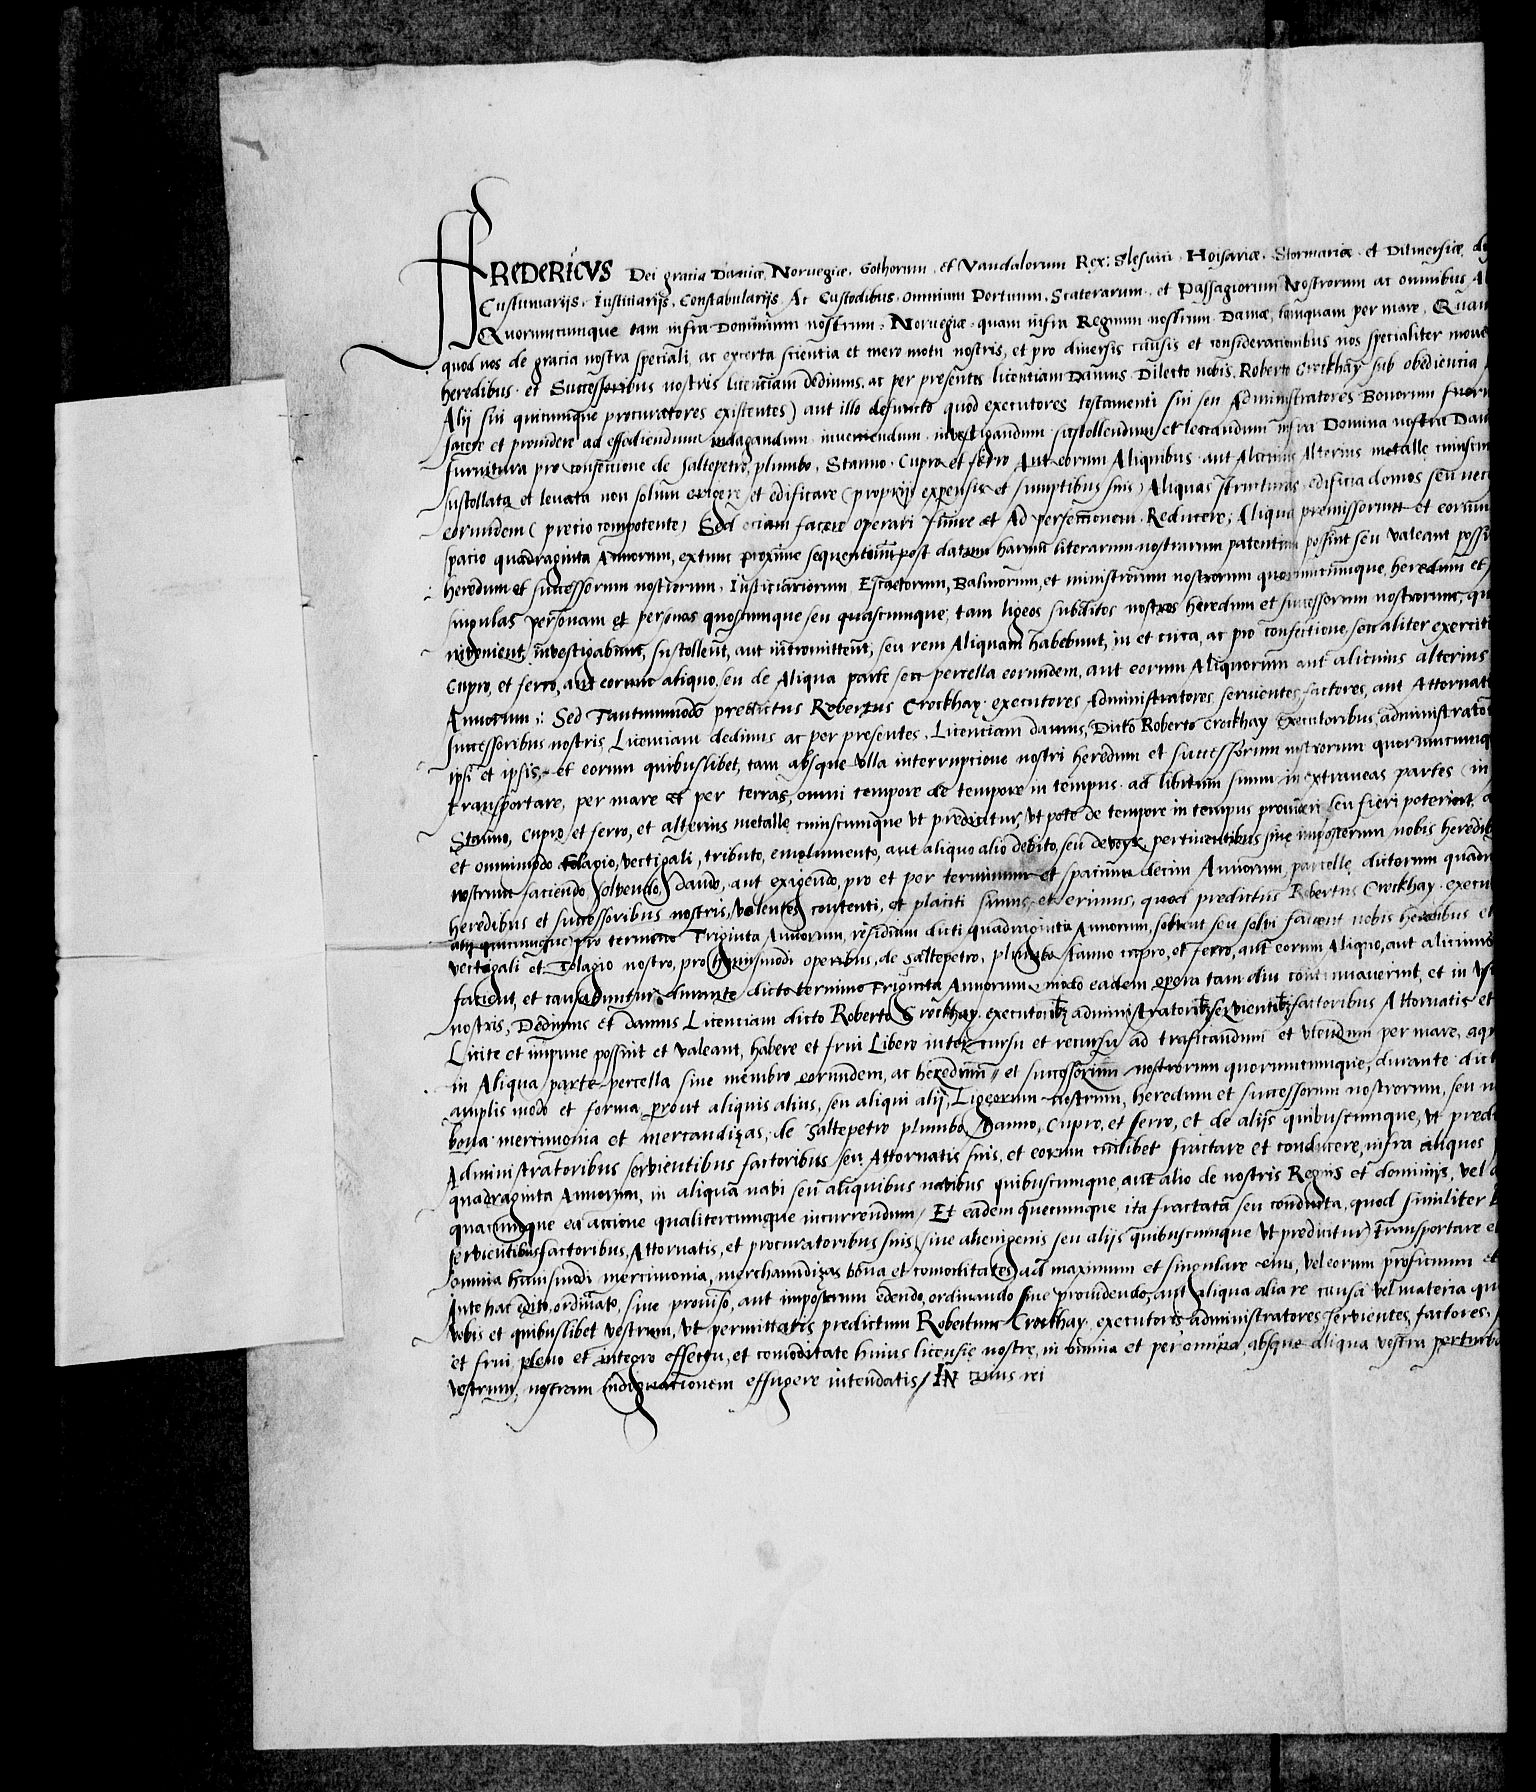 FREDERICVS Dei gratia Daniæ, Norvegiæ, Gothorum, et Vandalorum Rex: Slesuici, Holsatiæ, Stormariæ, et Ditmersiæ,
Custumarijs, Iusticiarijs, Constabularijs, Ac Custodibus, omnium Portuum, Scaterarum, et Passagiorum Nostrorum ac omnibus
Quorumcumque tam infra Dominium nostrum, Norvegiæ, quam infra Regnum nostrum Daniæ, tamquam per mare,
quod nos de gracia nostra speciali, ac excerta scientia et mero motu nostris, et pro diversis causis et considerationibus nos specialiter
heredibus et Successoribus nostris licenciam dedimus, ac per presentes licentiam Damus Dilecto nobis, Roberto Crockhay sub obediencia
Alij sui quicumque procuratores existentes) aut illo defuncto quod executores testamenti sui seu Administratores Bonorum
facere et providere ad effodiendum indagandum inveniendum investigandum sustollendum et levandum infra Dominia nostra
furnitura pro confectione de saltepetro, plumbo, Stanno, Cupro et ferro Aut eorum Aliquibus aut Alicuius Alterius metalle
sustollata et levata non solum erigere et edificare (proprijs expensis et sumptibus suis) Aliquas structuras edificia domos seu
eorumdem (precio competente) Sed eciam facere operari et Ad perfectionem Reducere, Aliqua premissorum et
spacio quadraginta Annorum, extunc proxime sequentium post datum harum literarum nostrarum patentium possint seu valeant
heredum et successorum nostrorum, Iusticiariorum Escaetorum, Balivorum, et ministrorum nostrorum quorumcumque, heredum et
singulas personam et personas quoscumque seu quascumque, tam ligeos subditos nostros heredum et successorum nostrorum,
invenient, investigabunt, sustollent, aut intromittent, seu rem Aliquam habebunt, in et circa, ac pro confectione, seu aliter
Cupro, et ferro, aut eorum aliquo, seu de Aliqua parte seu percella eorumdem, aut eorum Aliquorum aut alicuius alterius
Annorum: Sed Tantummodo predictus Robertus Crockhay executores Administratores servientes, factores, aut
successoribus nostris, Licenciam dedimus ac per presentes, Licenciam damus, Dicto Roberto Crockhay Executoribus,
ipsi et ipsis, et eorum quibuslibet, tam absque ulla interruptione nostri heredum et successorum nostrorum
transportare, per mare et per terras, omni tempore de tempore in tempus ad libitum suum in extraneas partes
Stanno, Cupro, et ferro, et alterius metalle cuiuscumque ut predicitur, ut pote de tempore in tempus provideri seu fieri poterint,
et omnimodo tolagio, vectigali, tributo, emolumento, aut aliquo alio debito, seu pertinentibus sive imposterum nobis
nostrum faciendo solvendo, dando, aut exigendo, pro et per terminum et spacium decim Annorum parcelle dictorum
heredibus et successoribus nostris, volentes contenti, et placiti sumus, et erimus, quod predictus Robertus Crockhay
alij quicumque pro termino Triginta Annorum, residium dicti quadraginta Annorum, solvent seu solvi facient nobis heredibus et
vectigali et Tolagio nostro, pro huiusmodi operibus, de saltepetro, plumbo Stanno cupro, et ferro, aut eorum Aliquo, aut
facient, et causabuntur, durante dicto termino Triginta Annorum, modo eadem opera tam diu continuaverint, et in
nostris, Dedimus et damus Licenciam dicto Roberto Crockhay executoribus administratoribus servientibus factoribus Attornatis et
Licite et impune possint et valeant, habere et frui Libero intercursu et recursu ad traficandum et utendum per mare,
in Aliqua parte percella sive membro eorumdem, ac heredum et successorum nostrorum quorumcumque, durante
amplis modo et forma, prout aliquis alius, seu aliqui alij, Ligeorum nostrum, heredum et successorum nostrorum, seu
bona mercimonia et mercandizas, de saltepetro plumbo, Stanno, Cupro, et ferro, et de alijs quibuscumque, ut
Administratoribus servientibus factoribus seu Attornatis suis, et eorum cuilibet fractare et conducere, infra
quadraginta Annorum, in aliqua navi seu aliquibus navibus quibuscumque, aut alio de nostris Regnis et dominijs, vel
quacumque ea accione qualitercumque incurrendum / Et eadem quecumque ita fractata seu conducta, quod similiter
servientibus factoribus, Attornatis, et procuratoribus suis (sive alienigenis seu alijs quibuscumque ut predicitur) Transportare
omnia huiusmodi mercimonia, merchandizas bona et comoditates, ad maximum et singulare eius, vel eorum proficuum et
Ante hac edito, ordinato, sive proviso, aut imposterum edendo, ordinando sive providendo, aut aliqua alia re causa vel materia
vobis et quibuslibet vestrum, ut permittatis predictum Robertum Crockhay, executores administratores servientes, factores,
et frui, pleno et integro effectu, et comoditate huius licensie nostre, in omnia et per omnia, absque aliqua vestra
vestrum, nostram indignationem effugere intendatis / IN cuius rei